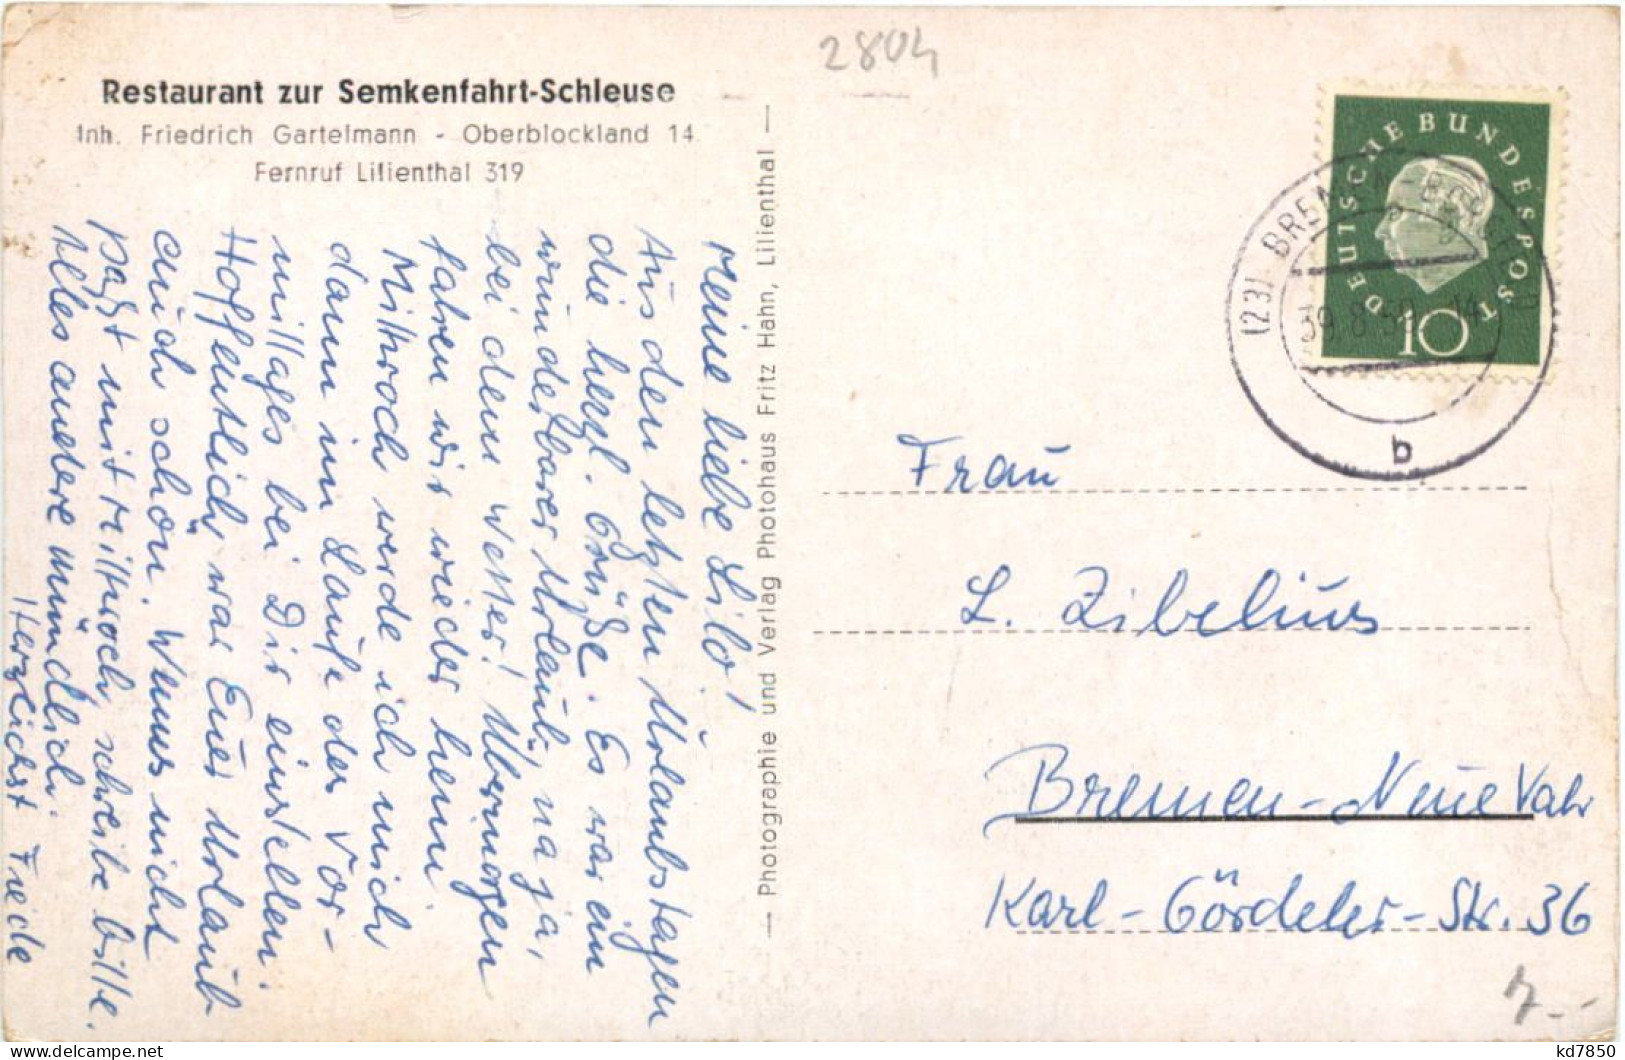 2804
Restaurant zur Semkenfahrt-Schleuse
Inh. Friedrich Gartelmann - Oberblockland 14
Fernruf Lilienthal 319
Meine liebe Lilo!
Aus den letzten Urlaubstagen
die herzl. Grüße. Es war ein
wunderbarer Urlaub, na ja,
bei dem Wetter! Übermorgen
fahren wir wieder heim
Mittwoch werde ich mich
dann im Laufe des Vor-
mittages bei Dir einstellen.
Hoffentlich war Euer Urlaub
auch schön. Wenns nicht
paßt mit Mittwoch schreibe bitte.
Alles andere mündlich.
Herzlichst Friede
— Photographie und Verlag Photohaus Fritz Hahn, Lilienthal —
DEUTSCHE BUNDESPOST
10
(23) BREMEN
b
Frau
L. Zibelius
Bremen-Neue Vahr
Karl-Gördeler-Str. 36
7.-
kd7850